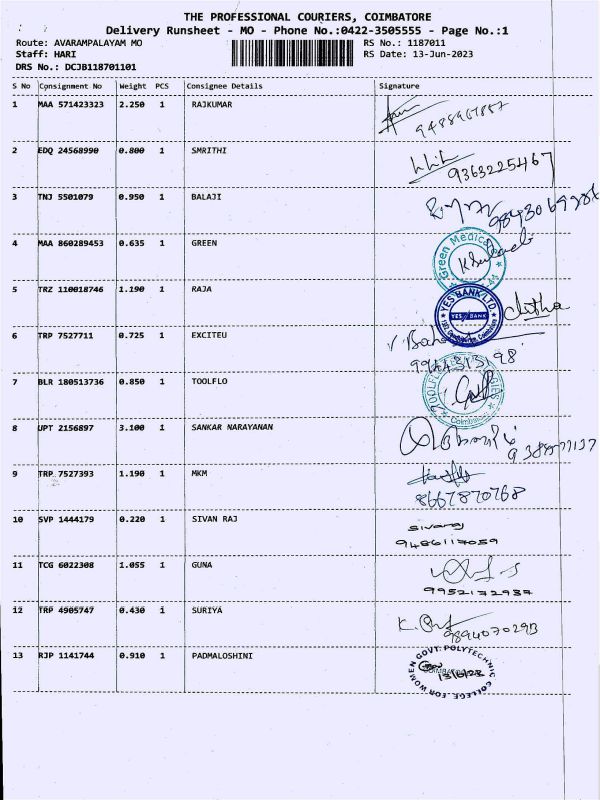 THE PROFESSIONAL COURIERS, COIMBATORE
Delivery Runsheet - MO - Phone No.:0422-3505555 - Page No.:1
Route: AVARAMPALAYAM MO RS No.: 1187011
Staff: HARI RS Date: 13-Jun-2023
DRS No.: DCJB118701101
S No Consignment No Weight PCS Consignee Details Signature
1 MAA 571423323 2.250 1 RAJKUMAR
2 EDQ 24568990 0.800 1 SMRITHI 9363225467
3 TNJ 5501079 0.950 1 BALAJI
4 MAA 860289453 0.635 1 GREEN Green Medica
5 TRZ 110018746 1.190 1 RAJA YES BANK LTD. YES BANK
6 TRP 7527711 0.725 1 EXCITEU
7 BLR 180513736 0.850 1 TOOLFLO
8 UPT 2156897 3.100 1 SANKAR NARAYANAN
9 TRP 7527393 1.190 1 MKM 8667870768
10 SVP 1444179 0.220 1 SIVAN RAJ Sivaraj
9486117059
11 TCG 6022308 1.055 1 GUNA
9952172937
12 TRP 4905747 0.430 1 SURIYA
9894070293
13 RJP 1141744 0.910 1 PADMALOSHINI GOVT. POLYTECHNIC COLLEGE FOR WOMEN
13/6/23